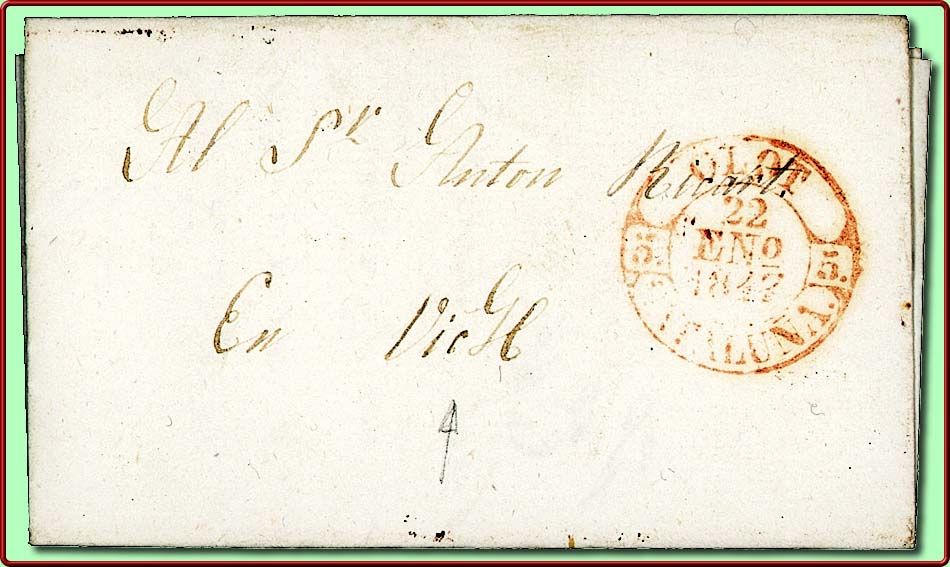 Al Sr. Anton Ricart.
En VicH
OLOT
22
ENº
1847
5. 5.
CATALUÑA.